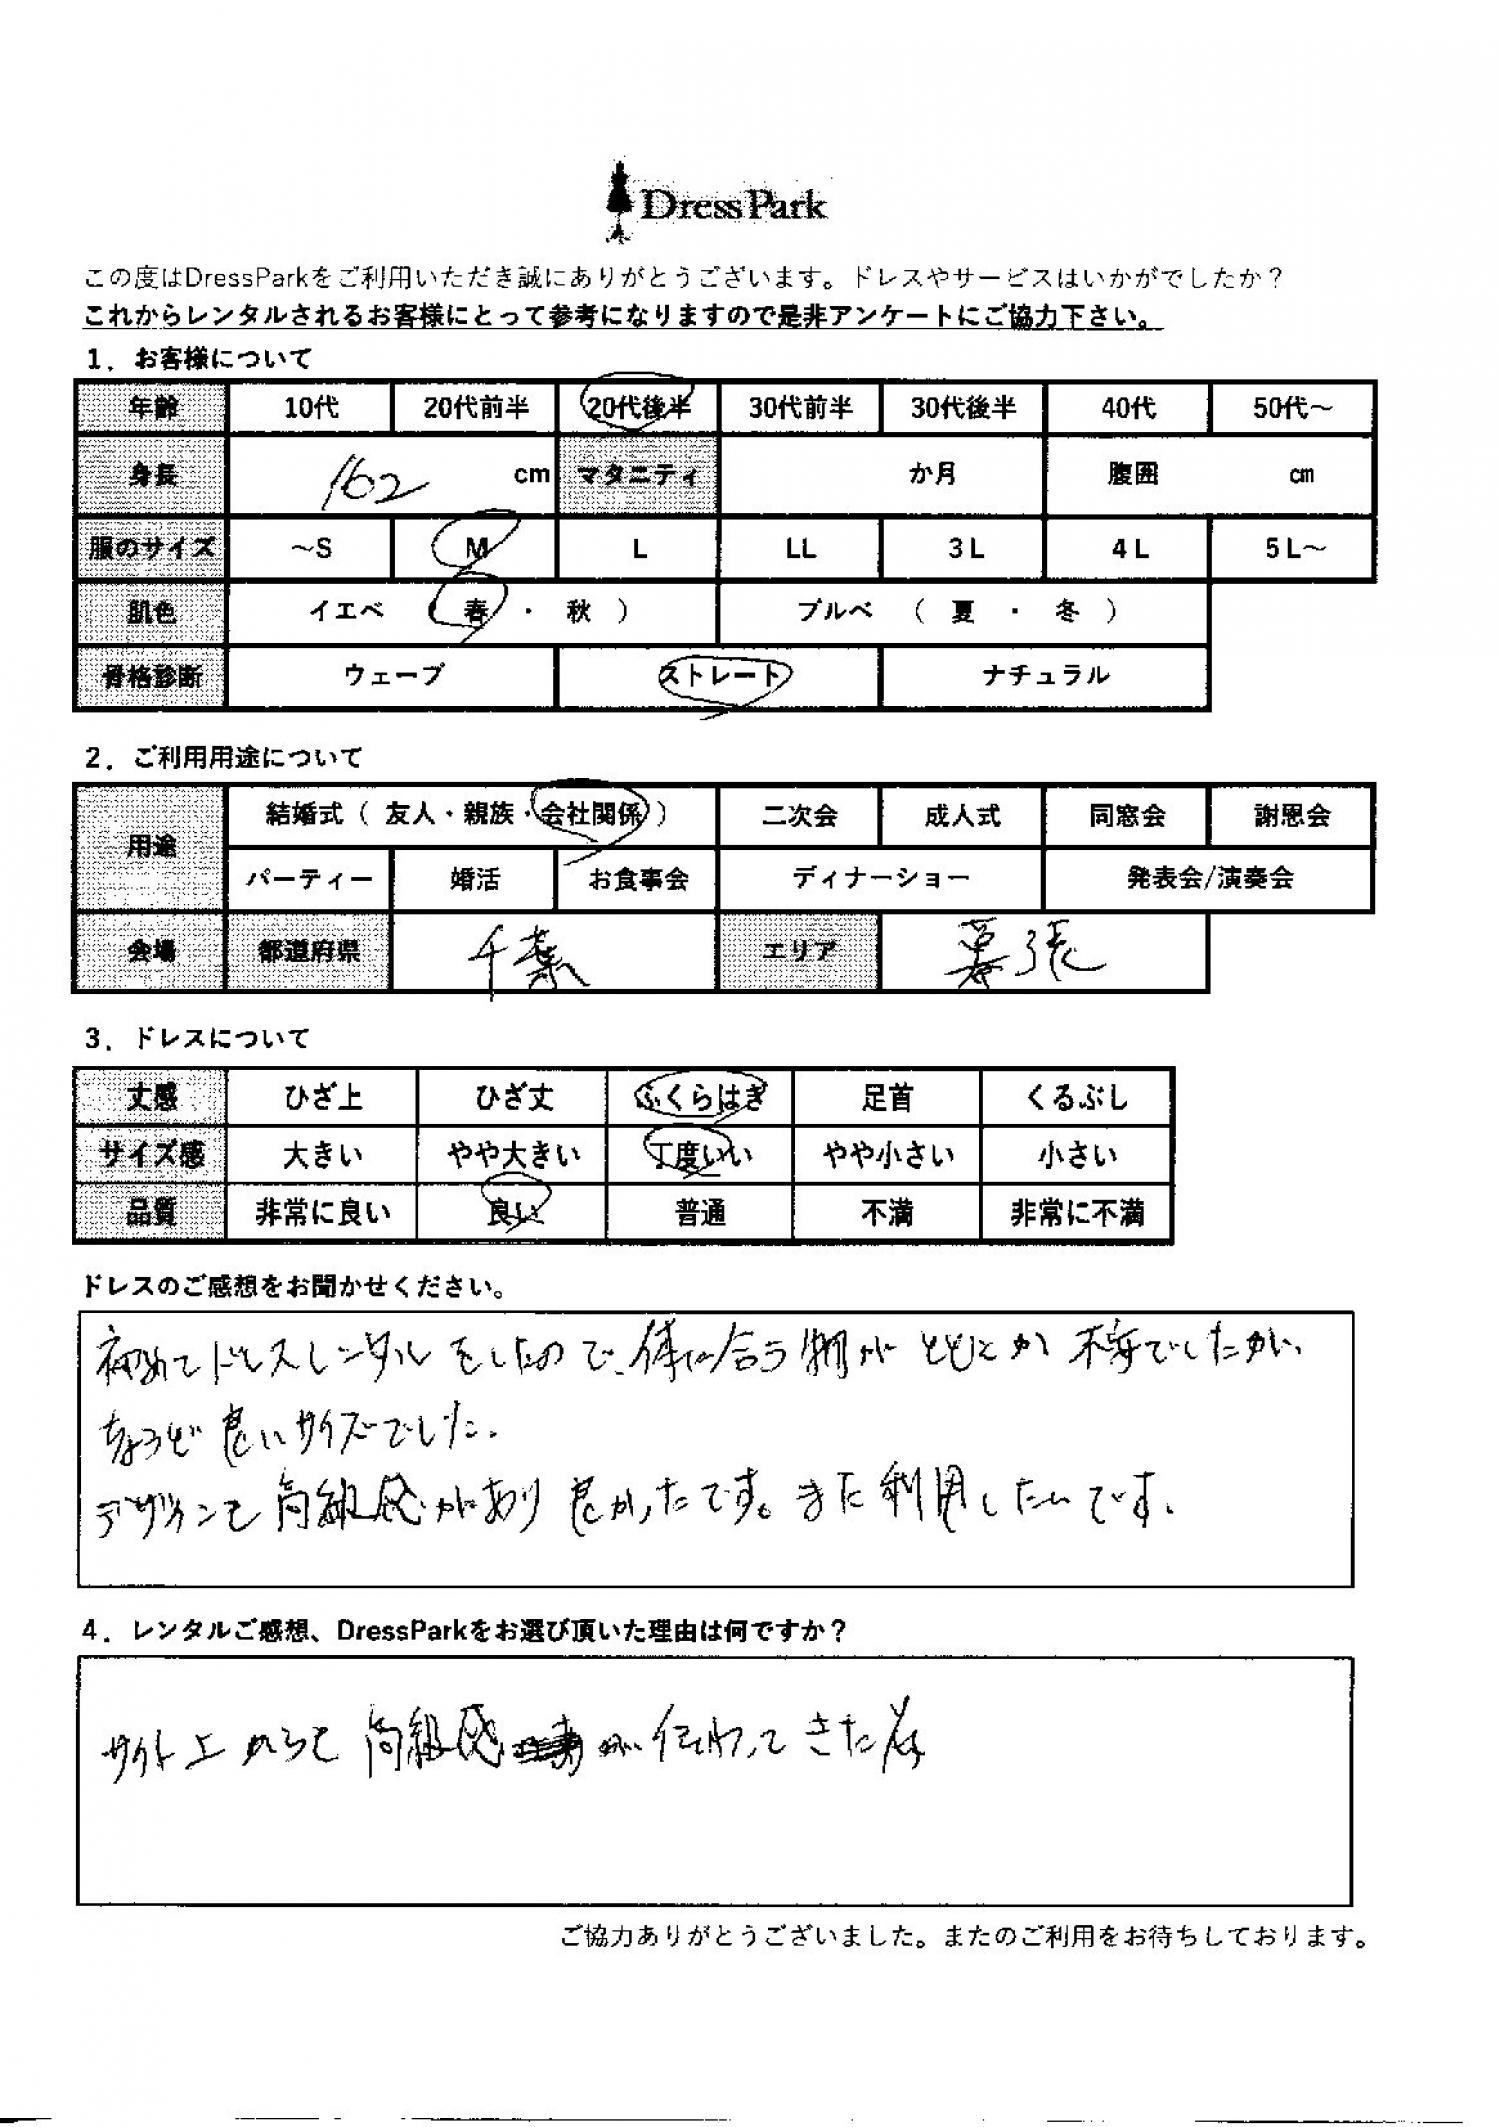 DressPark
この度はDressParkをご利用いただき誠にありがとうございます。ドレスやサービスはいかがでしたか？
これからレンタルされるお客様にとって参考になりますので是非アンケートにご協力下さい。
1．お客様について
年齢 10代 20代前半 20代後半 30代前半 30代後半 40代 50代～
身長 162 cm マタニティ か月 腹囲 cm
服のサイズ ～S M L LL 3L 4L 5L～
肌色 イエベ （ 春 ・ 秋 ） ブルベ （ 夏 ・ 冬 ）
骨格診断 ウェーブ ストレート ナチュラル
2．ご利用用途について
用途 結婚式（ 友人・親族・会社関係 ） 二次会 成人式 同窓会 謝恩会
パーティー 婚活 お食事会 ディナーショー 発表会/演奏会
会場 都道府県 千葉 エリア 幕張
3．ドレスについて
丈感 ひざ上 ひざ丈 ふくらはぎ 足首 くるぶし
サイズ感 大きい やや大きい 丁度いい やや小さい 小さい
品質 非常に良い 良い 普通 不満 非常に不満
ドレスのご感想をお聞かせください。
初めてドレスレンタルをしたので、体に合う物が とか 不安でしたが、
ちょうど良いサイズでした。
デザインも高級感があり良かったです。また利用したいです。
4．レンタルご感想、DressParkをお選び頂いた理由は何ですか？
サイト上からも高級感が伝わってきた為
ご協力ありがとうございました。またのご利用をお待ちしております。